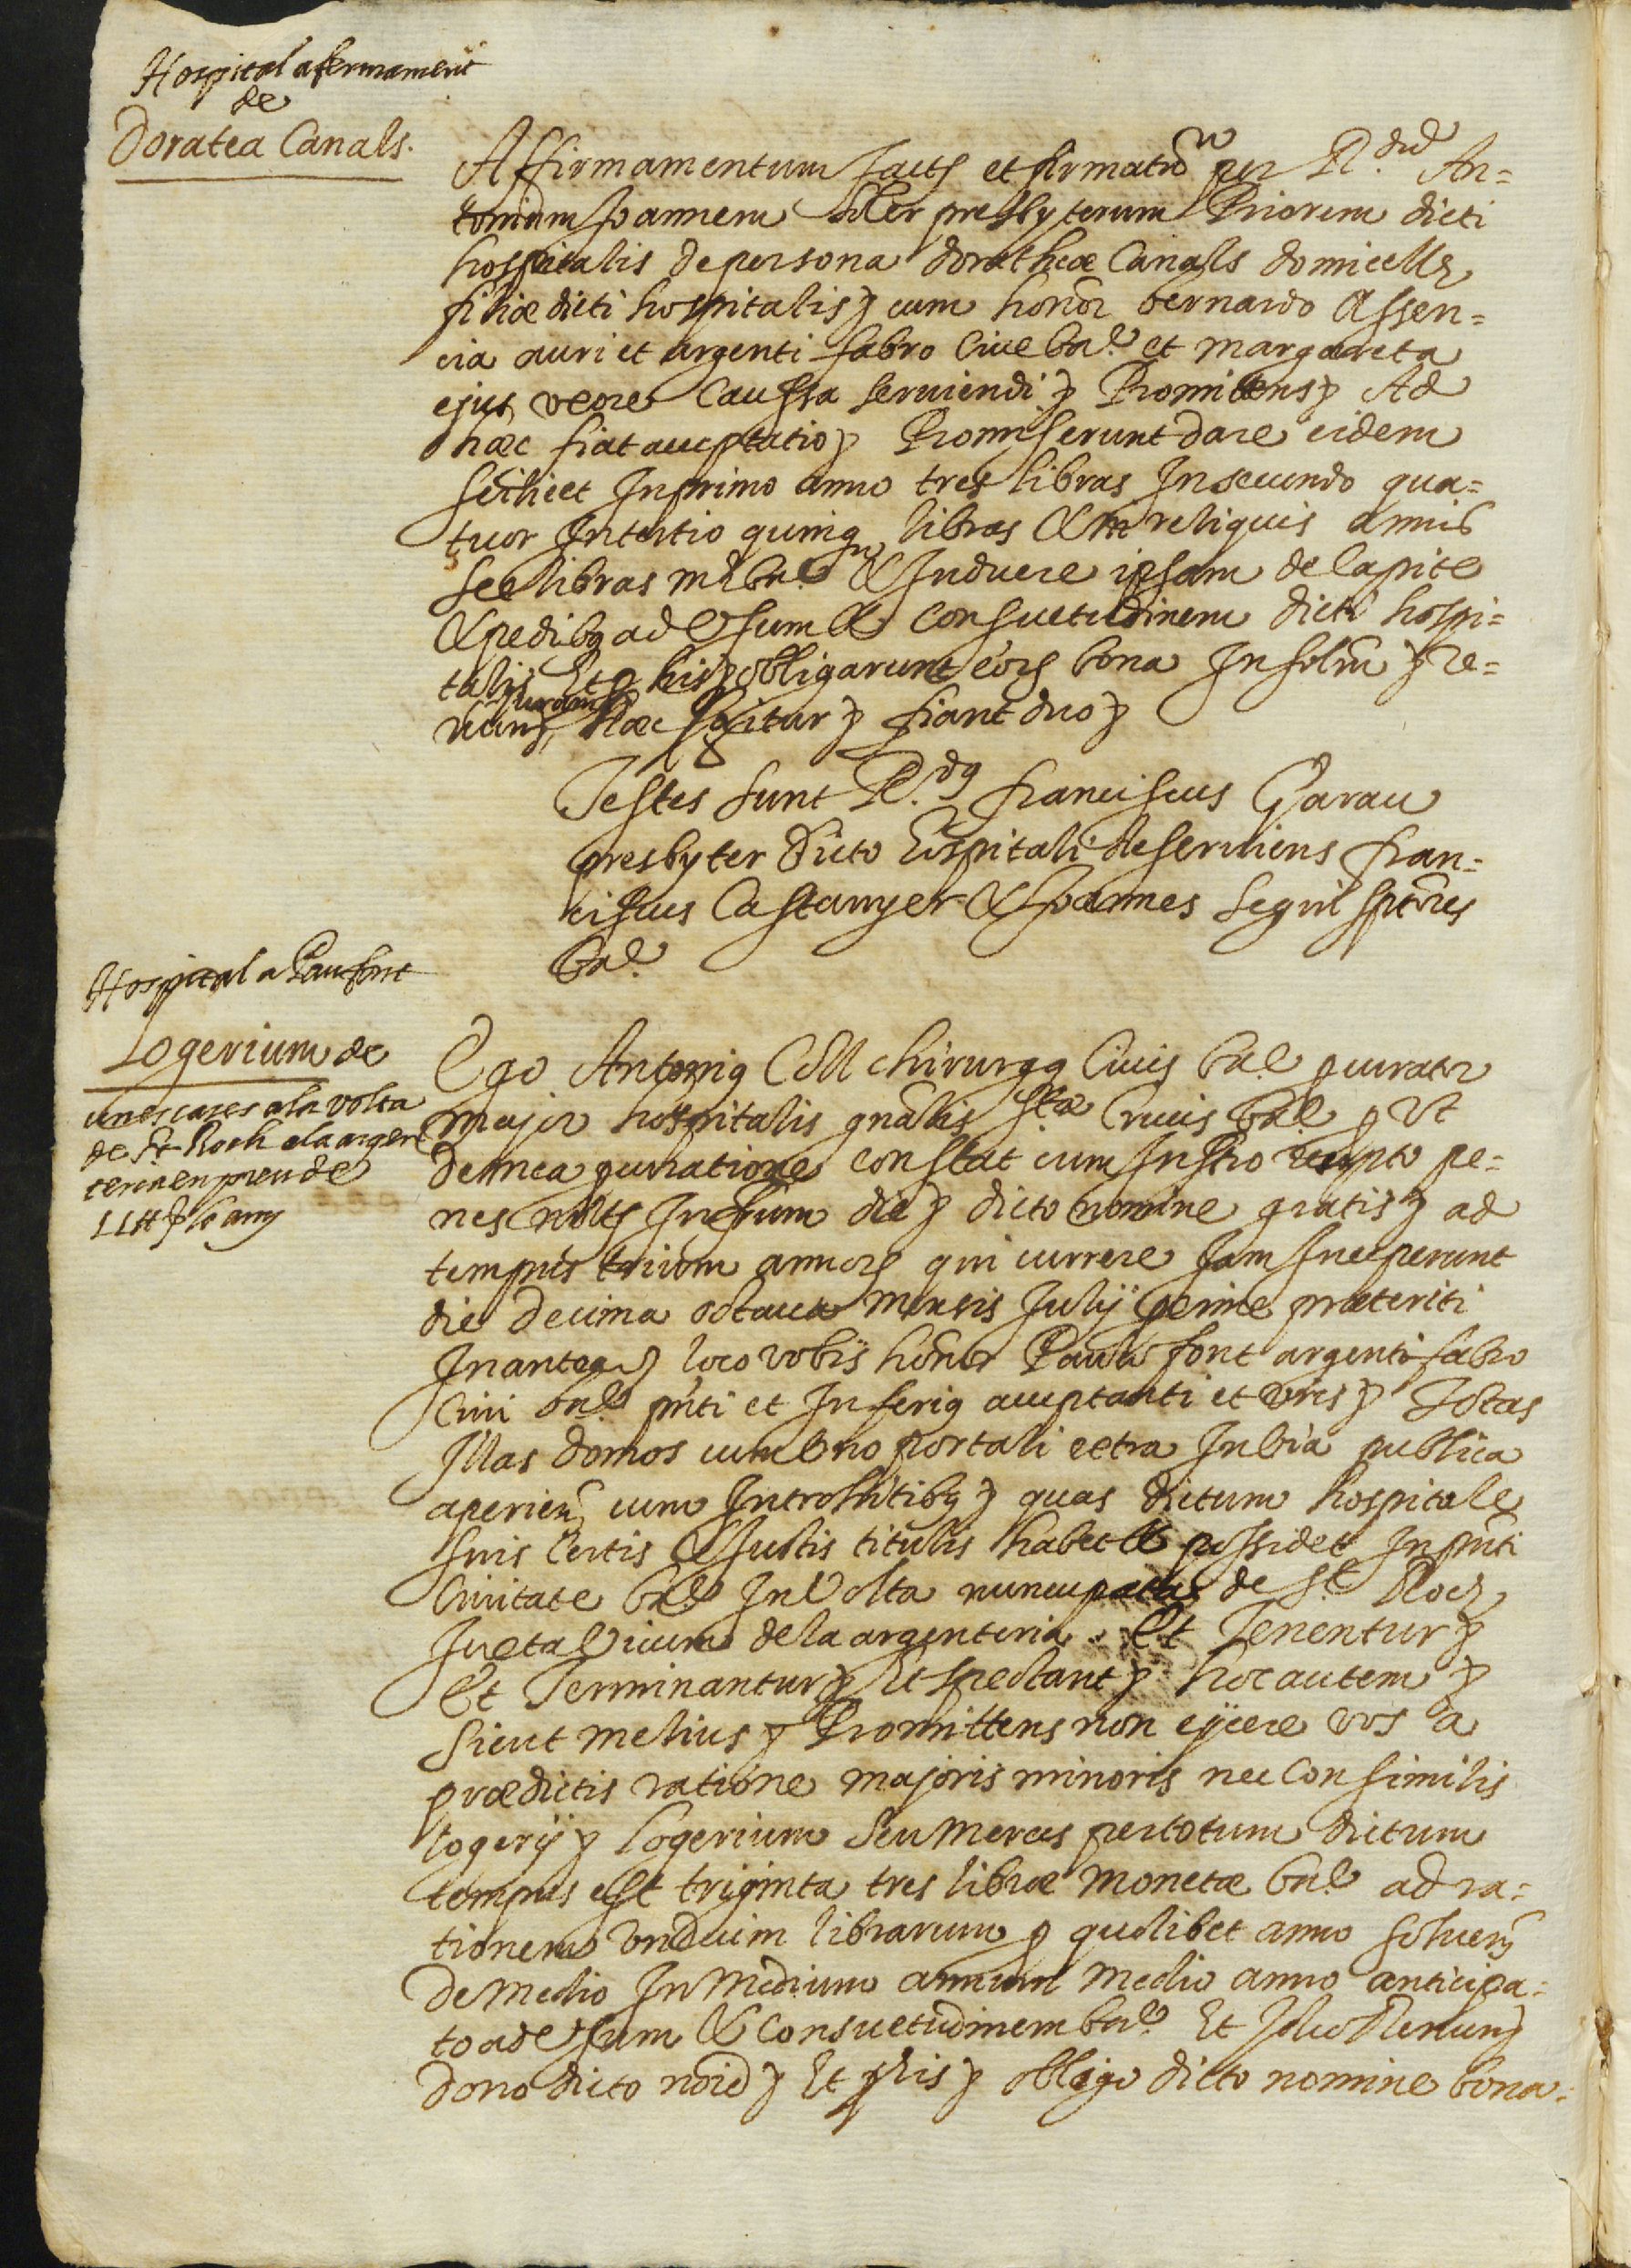 Hospital afermament
de
Doratea Canals.
Affirmamentum fact et firmatū per R.dū An=
tonium Joannem Soler presbyterum Priorem dicti
hospitalis de persona dorotheæ Canals domicellæ
filiæ dicti hospitalis cum honor bernardo Assen=
cia auri et argenti fabro Cive bar. et margareta
ejus uxore Caussa serviendi Promittens Ad
hæc fiat acceptatio Promiserunt dare eidem
scilicet In primo anno tres libras In secundo qua=
tuor In tertio quinq libras & In reliquis annis
sex libras m bar. & Induere ipsam de capite
& pedibq ad Usum & Consuetudinem dicti hospi=
talis Et p his obligarunt eor bona In solm re=
nun juram Hæc Igitur fiant duo
Testes sunt R.dq franciscus Garau
presbyter Dicto hospitali deserviens fran=
ciscus Castanyer & Joannes Segui sptores
bar.
Hospital a Pau font
Logerium de
unes cases a la volta
de St Roch a la argen
teria en preu de
11 ll lo any
Ego Antoniq Coll chirurgq Civis bar. pcurator
major hospitalis gnalis Stæ Crucis bar. p Ut
de mea pcuratione constat cum Instro recepto pe=
nes nots Infrum die dicto nomine gratis ad
tempus trium annor qui currere Jam Inceperunt
die decima octava mensis Julij proxime præteriti
In antea loco vobis honor Paulo font argenti fabro
Civi bar. pnti et Inferiq acceptanti et vris Totas
Illas domos cum Uno portali extra In via publica
aperien cum Introhitibq quas dictum hospitale
suis Certis & Justis titulis habet & possidet In pnti
Civitate bar. In Volta nuncupata de St. Roch
Juxta Vicum de la argenteria. Et Tenentur
Et Terminantur Et spectant hoc autem
Sicut melius Promittens non ejicere vos a
prædictis ratione majoris minoris nec Consimilis
logerij Logerium seu merces per totum dictum
tempus est triginta tres libræ monetæ bar. ad ra=
tionem Undecim librarum p quolibet anno solven
de Medio In Medium annum medio anno anticipa=
to ad Usum & Consuetudinem bar. Et Ideo Renun
dono dicto noie Et p his obligo dicto nomine bona=